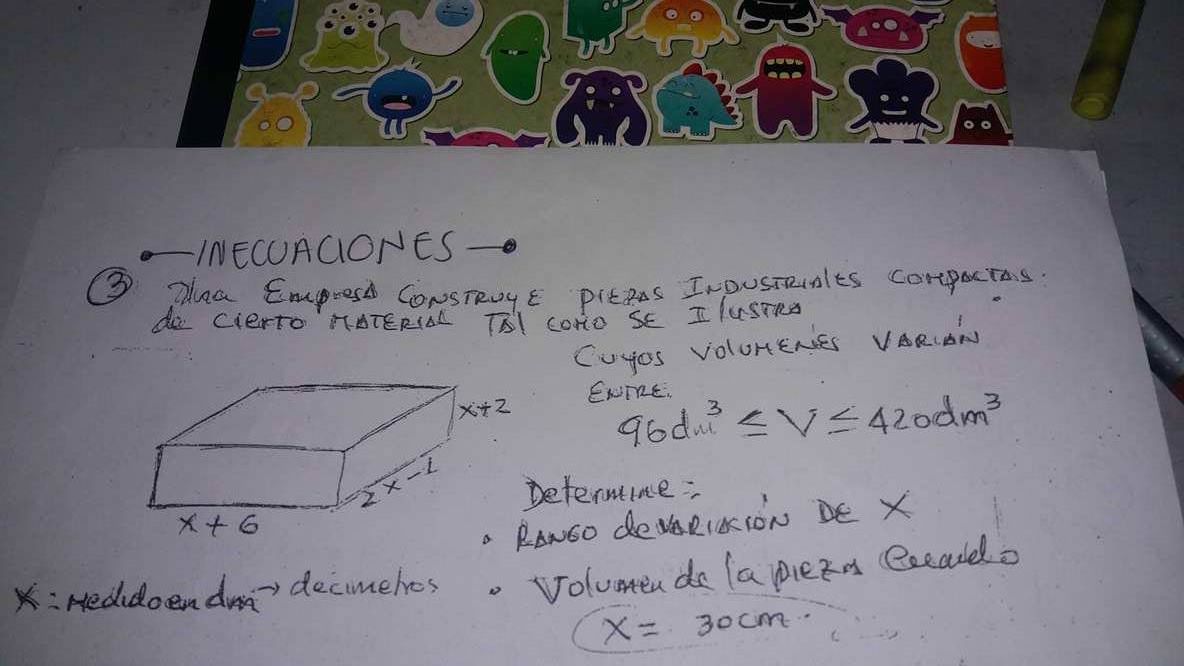 INECUACIONES
3 Una Empresa CONSTRUYE PIEZAS INDUSTRIALES COMPACTAS.
de CIERTO MATERIAL TAL COMO SE IlUSTRA
Cuyos VOLUMENES VARIAN
ENTRE.
96dm³ ≤ V ≤ 420dm³
x+2
2x-1
x+6
Determine:
• RANGO de VARIACIÓN DE X
• Volumen de la PIEZA Cuando
X = 30cm.
X = Medido en dm → decimetros